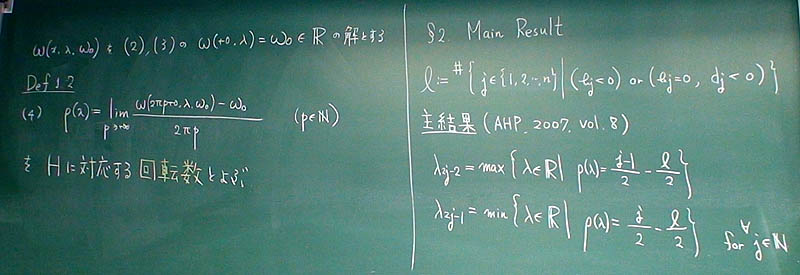 ω(x, λ, ω₀) を (2), (3) の ω(+0, λ) = ω₀ ∈ ℝ の解とする
Def 1.2
(4) ρ(λ) = lim_{p→+∞} (ω(2πp+0, λ, ω₀) − ω₀) / 2πp (p∈ℕ)
を H に対応する 回転数 とよぶ。
§2. Main Result
ℓ := #{ j∈{1, 2, …, n} | (ej<0) or (ej=0, dj<0) }
主結果 (AHP, 2007, vol. 8)
λ_{2j-2} = max { λ∈ℝ | ρ(λ) = (j-1)/2 − ℓ/2 }
λ_{2j-1} = min { λ∈ℝ | ρ(λ) = j/2 − ℓ/2 } for ∀j∈ℕ